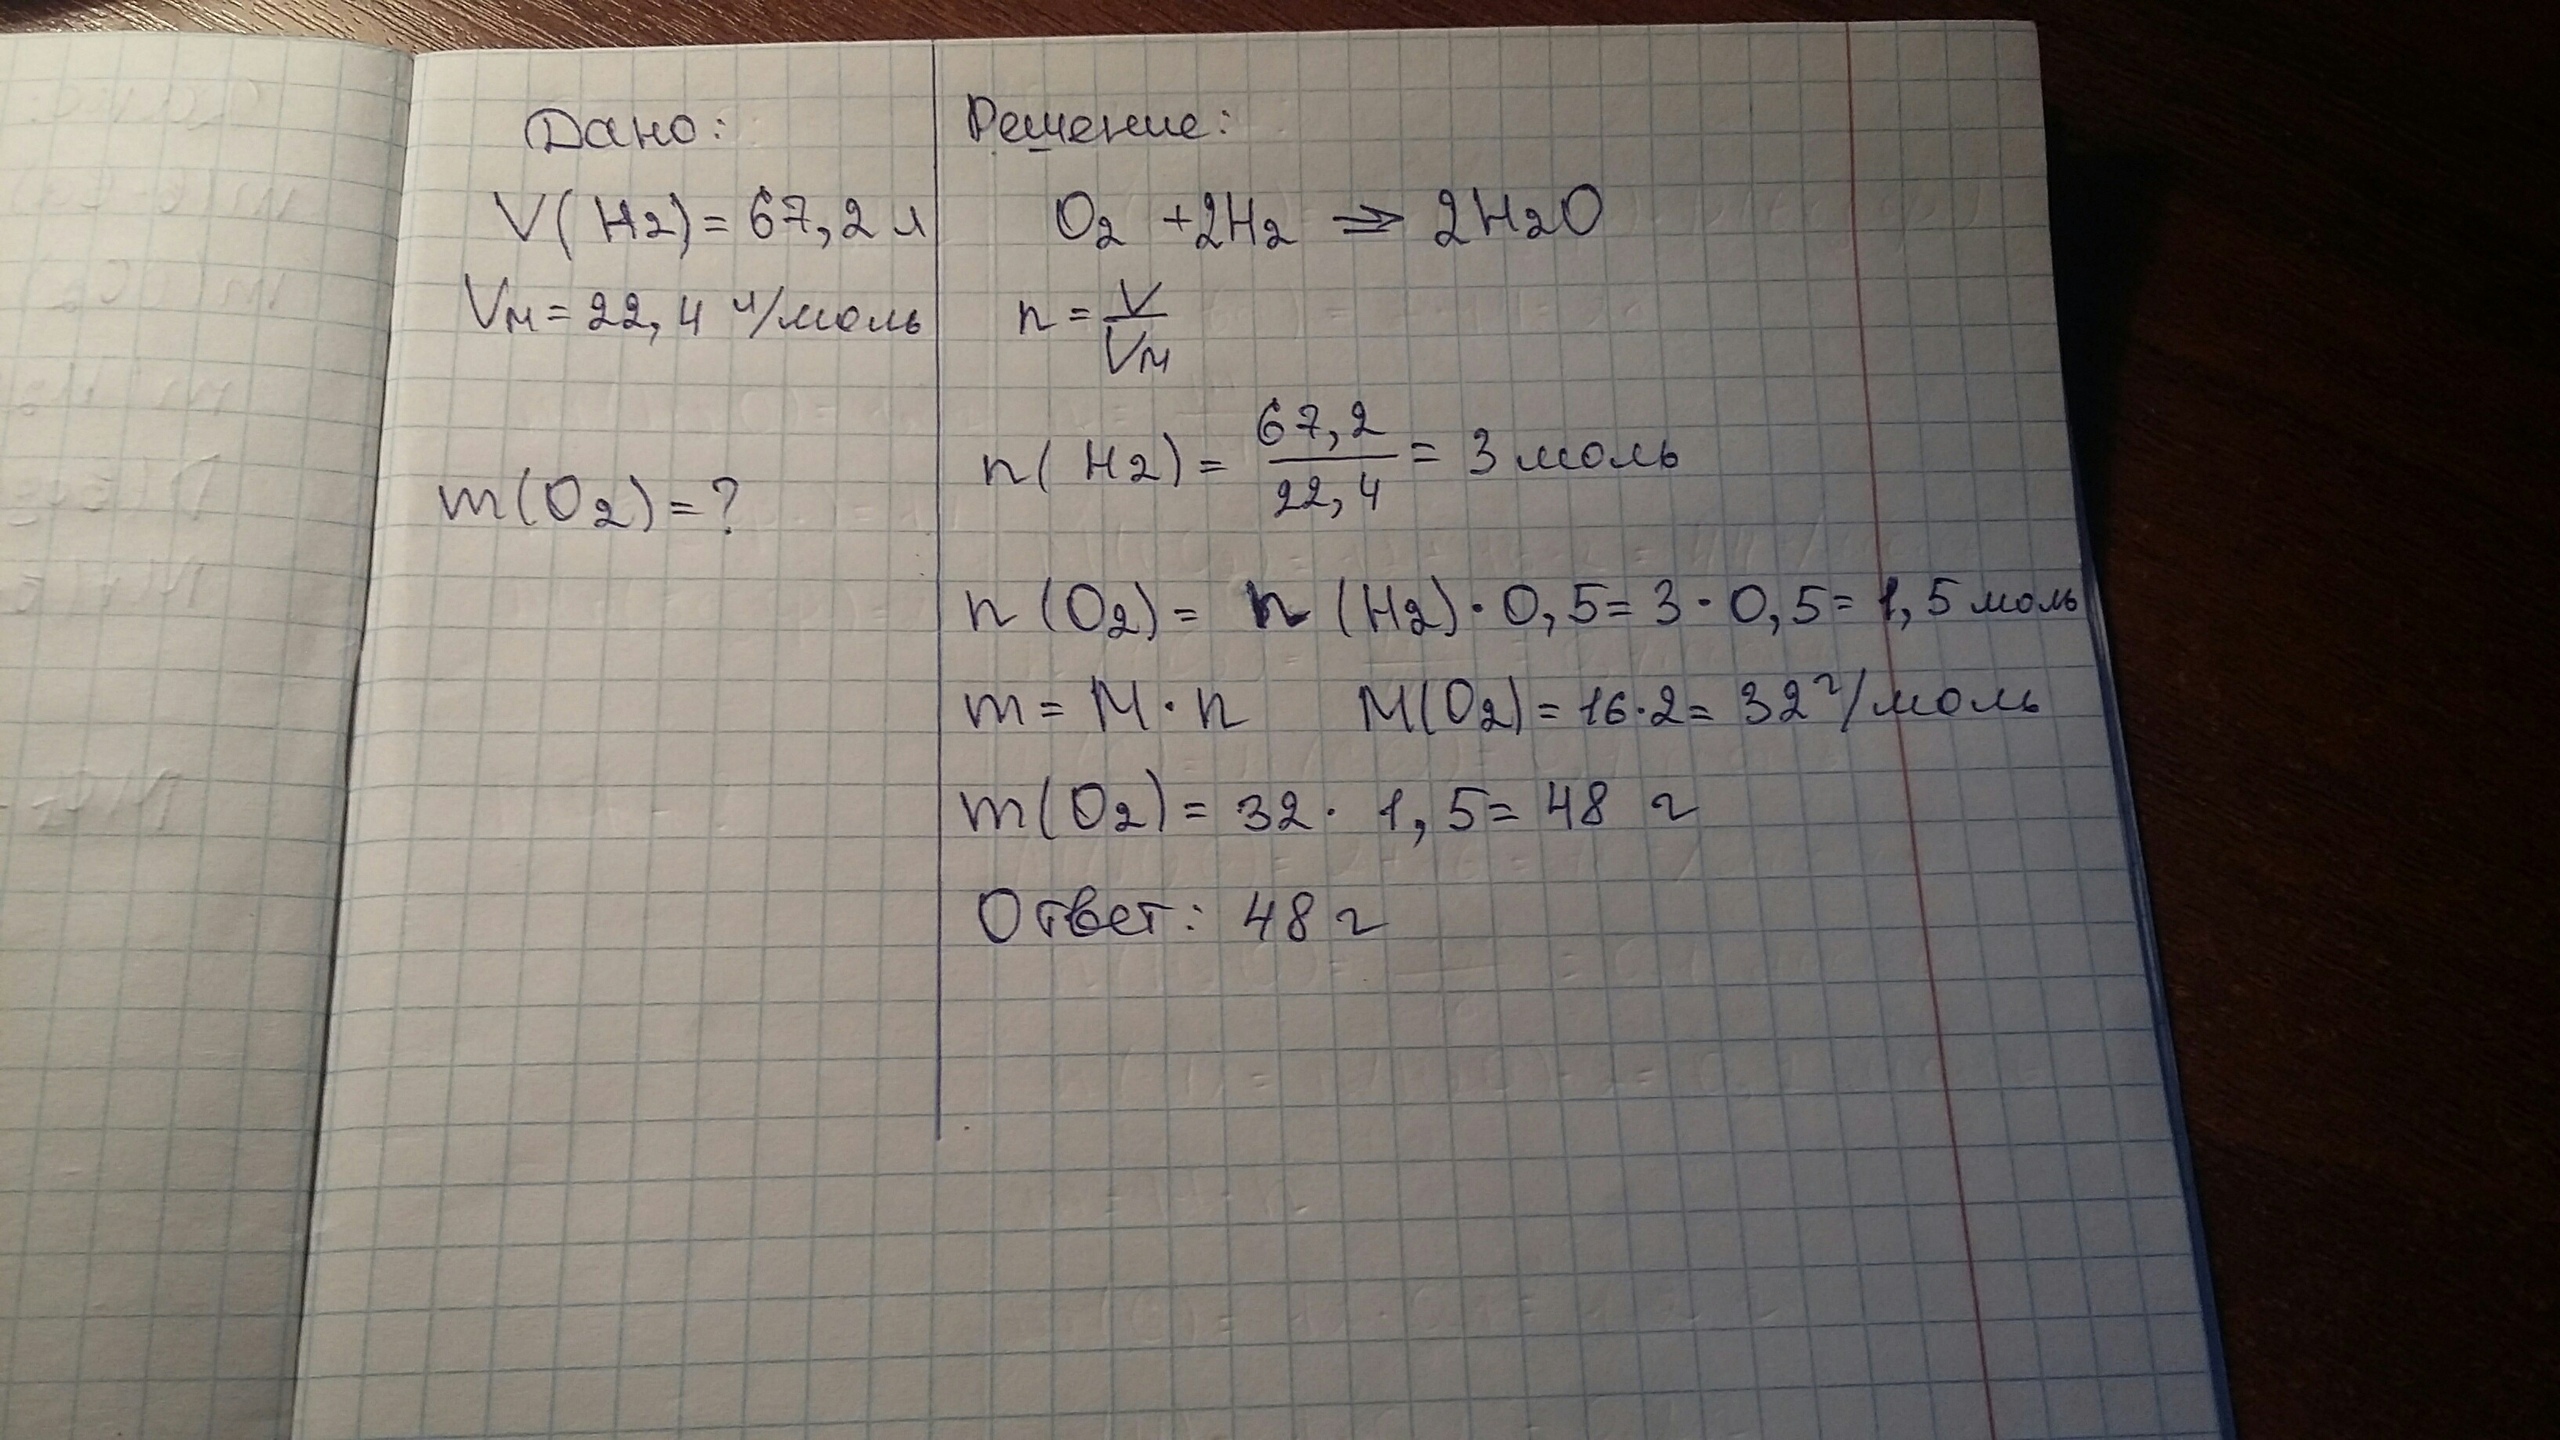 Дано:
V(H2) = 67,2 л
Vм = 22,4 л/моль
m(O2) = ?
Решение:
O2 +2H2 => 2H2O
n = V/Vм
n(H2) = 67,2/22,4 = 3 моль
n(O2) = n(H2)·0,5 = 3·0,5 = 1,5 моль
m = M·n M(O2) = 16·2 = 32 г/моль
m(O2) = 32·1,5 = 48 г
Ответ: 48 г